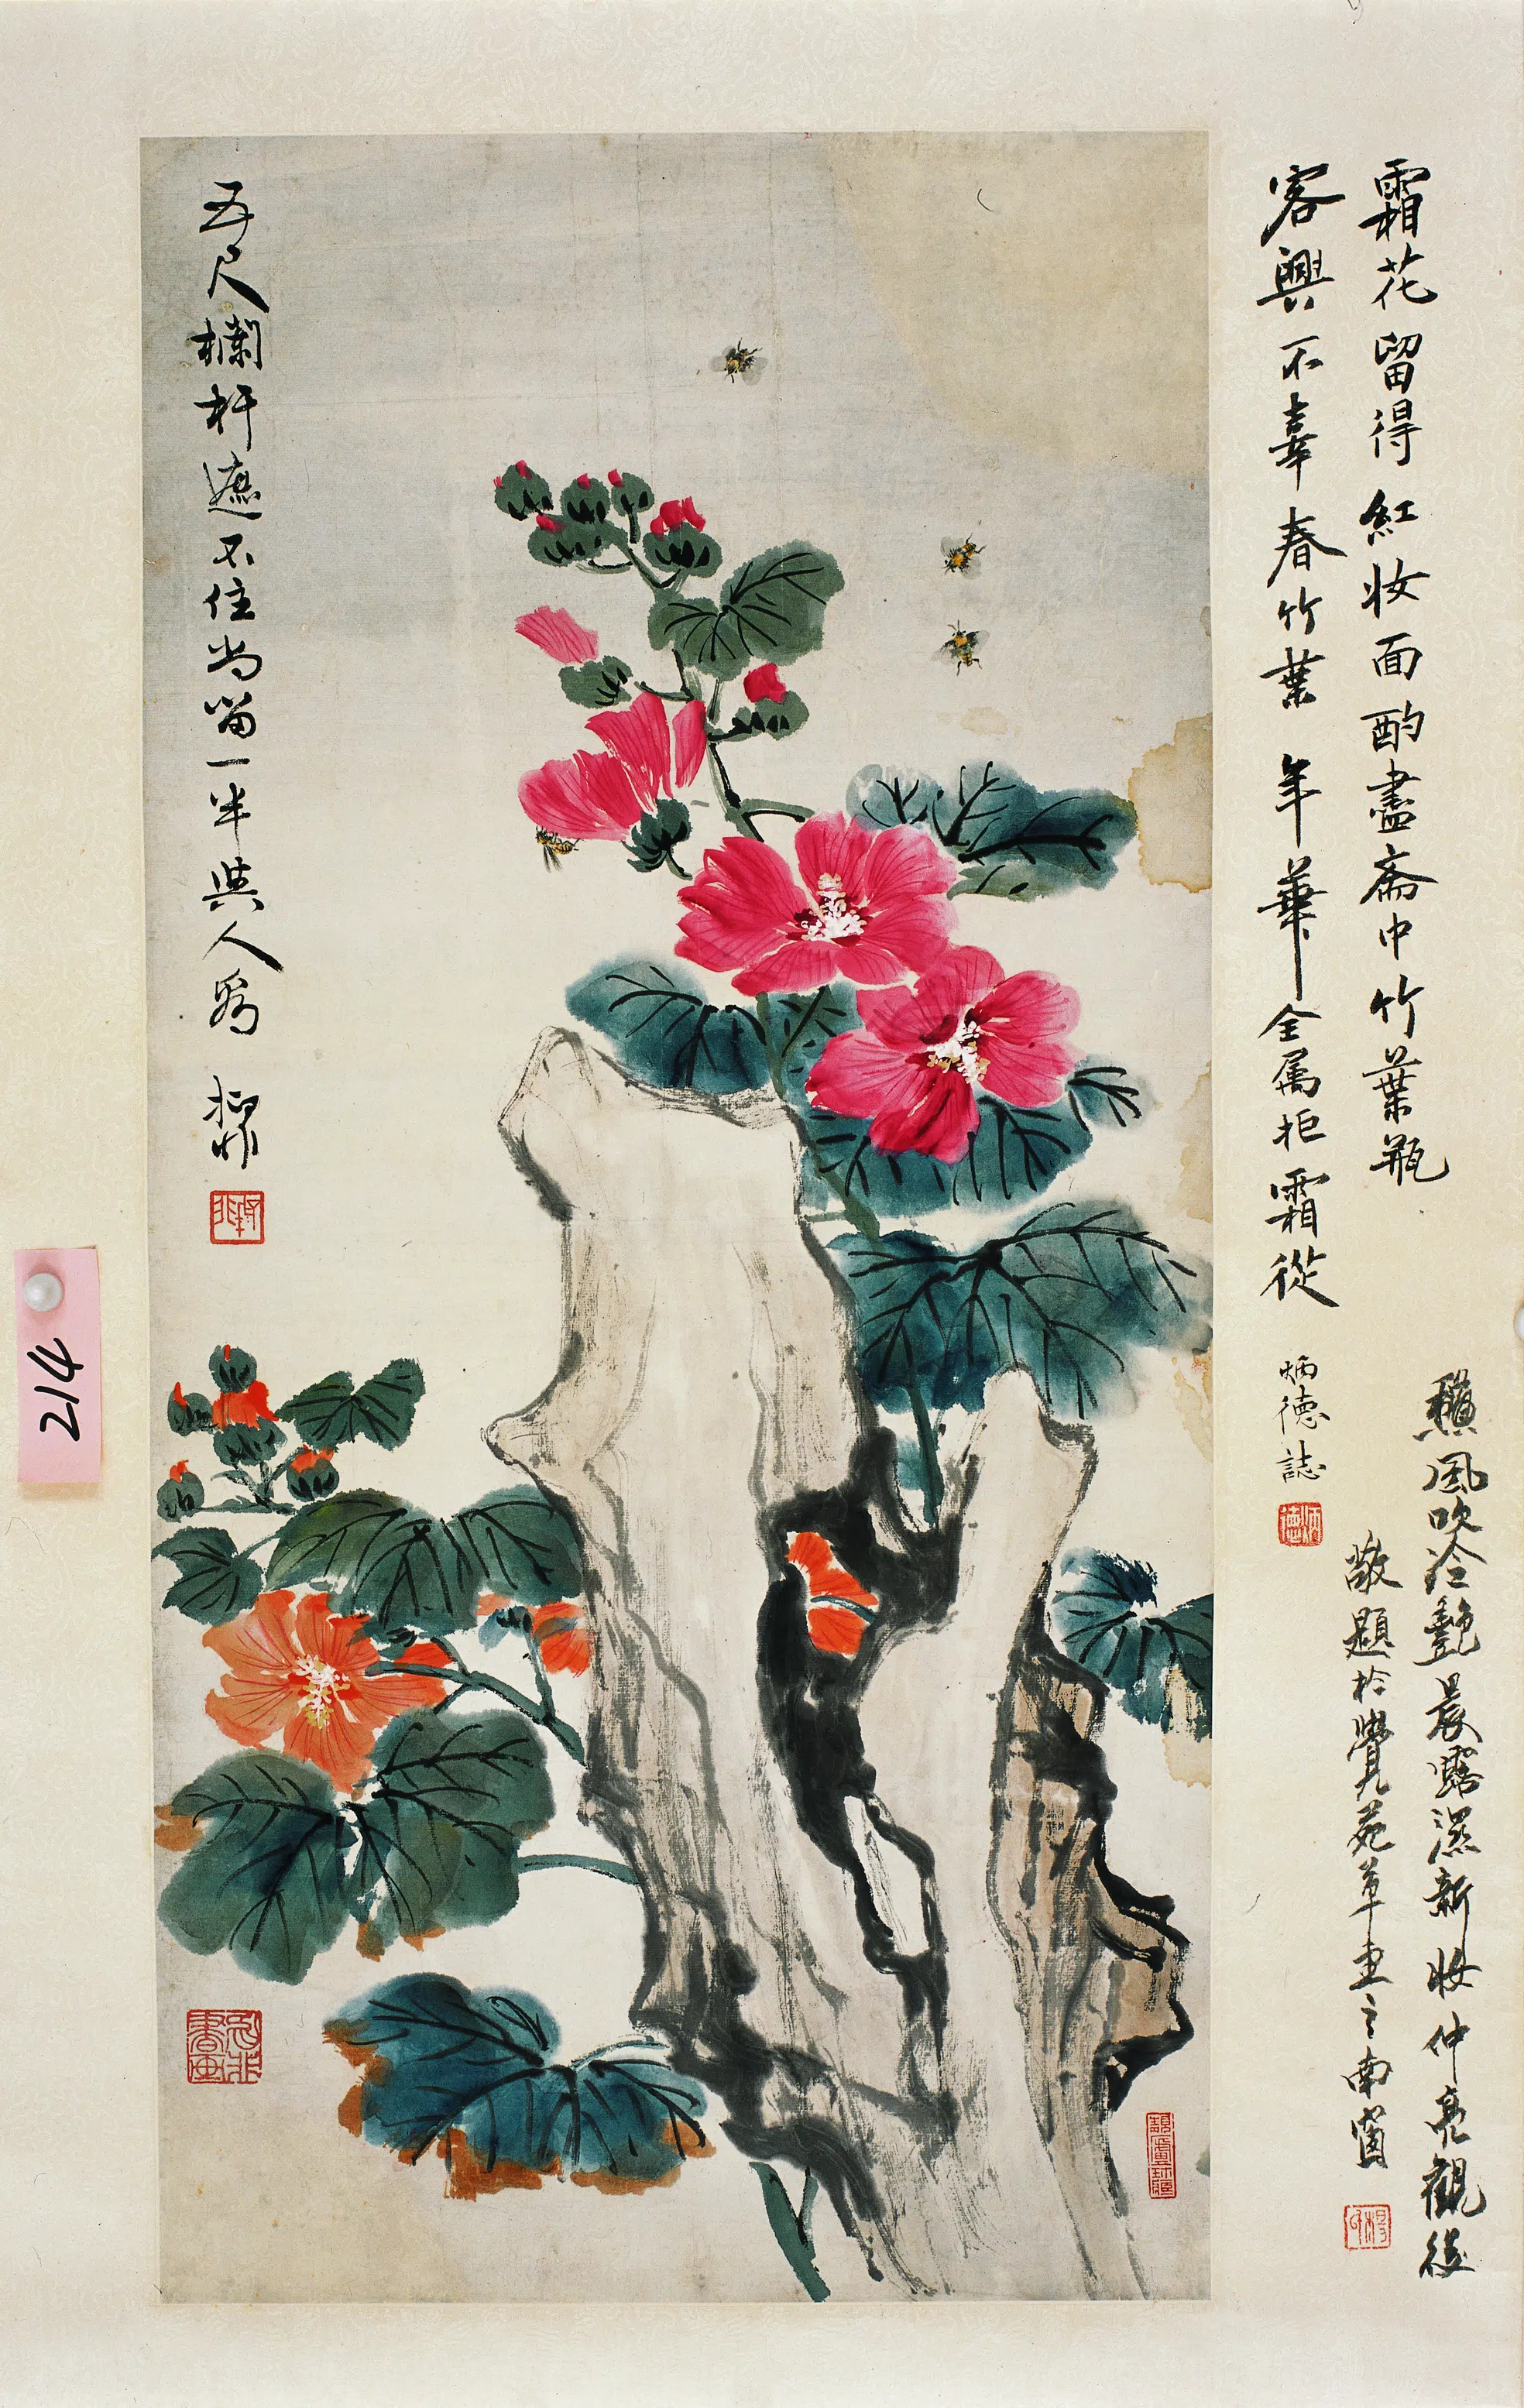 霜花留得紅妝面酌盡齋中竹葉瓶
客興不辜春竹葉年華全屬拒霜從
炳德誌
炳德
風吹冷艷晨露濕新妝仲亮觀後
敬題於覺苑草畫之南窗
五尺欄杆遮不住尚留一半與人看
214